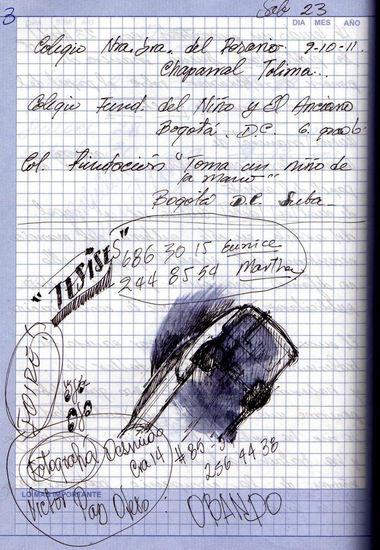 3
Sab 23
DIA MES AÑO
Colegio Ntra. Sra. del Rosario. 9-10-11.
Chaparral Tolima...
Colegio Fund. del Niño y El Anciano
Bogotá. D.C. 6. grado
Col. Fundación "Toma un niño de
la mano"
Bogotá D.C. Suba.
"TESISES"
686 30 15 Eunice
244 85 54 Martha
Fotografía
Cra 14 # 85-
256 94 38
LO MAS IMPORTANTE
Victor Paz
OBANDO